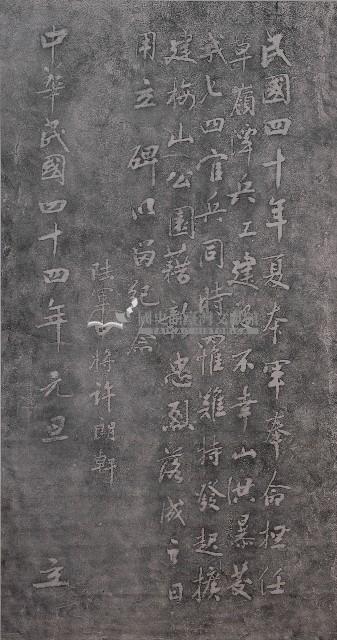 民國四十年夏本軍奉命担任
草嶺潭兵工建設不幸山洪暴發
七四官兵同時罹難特發起擴
建梅山公園藉彰忠烈落成之日
用立碑以留紀念
陸軍中將許朗軒
中華民國四十四年元旦 立
國史館臺灣文獻館